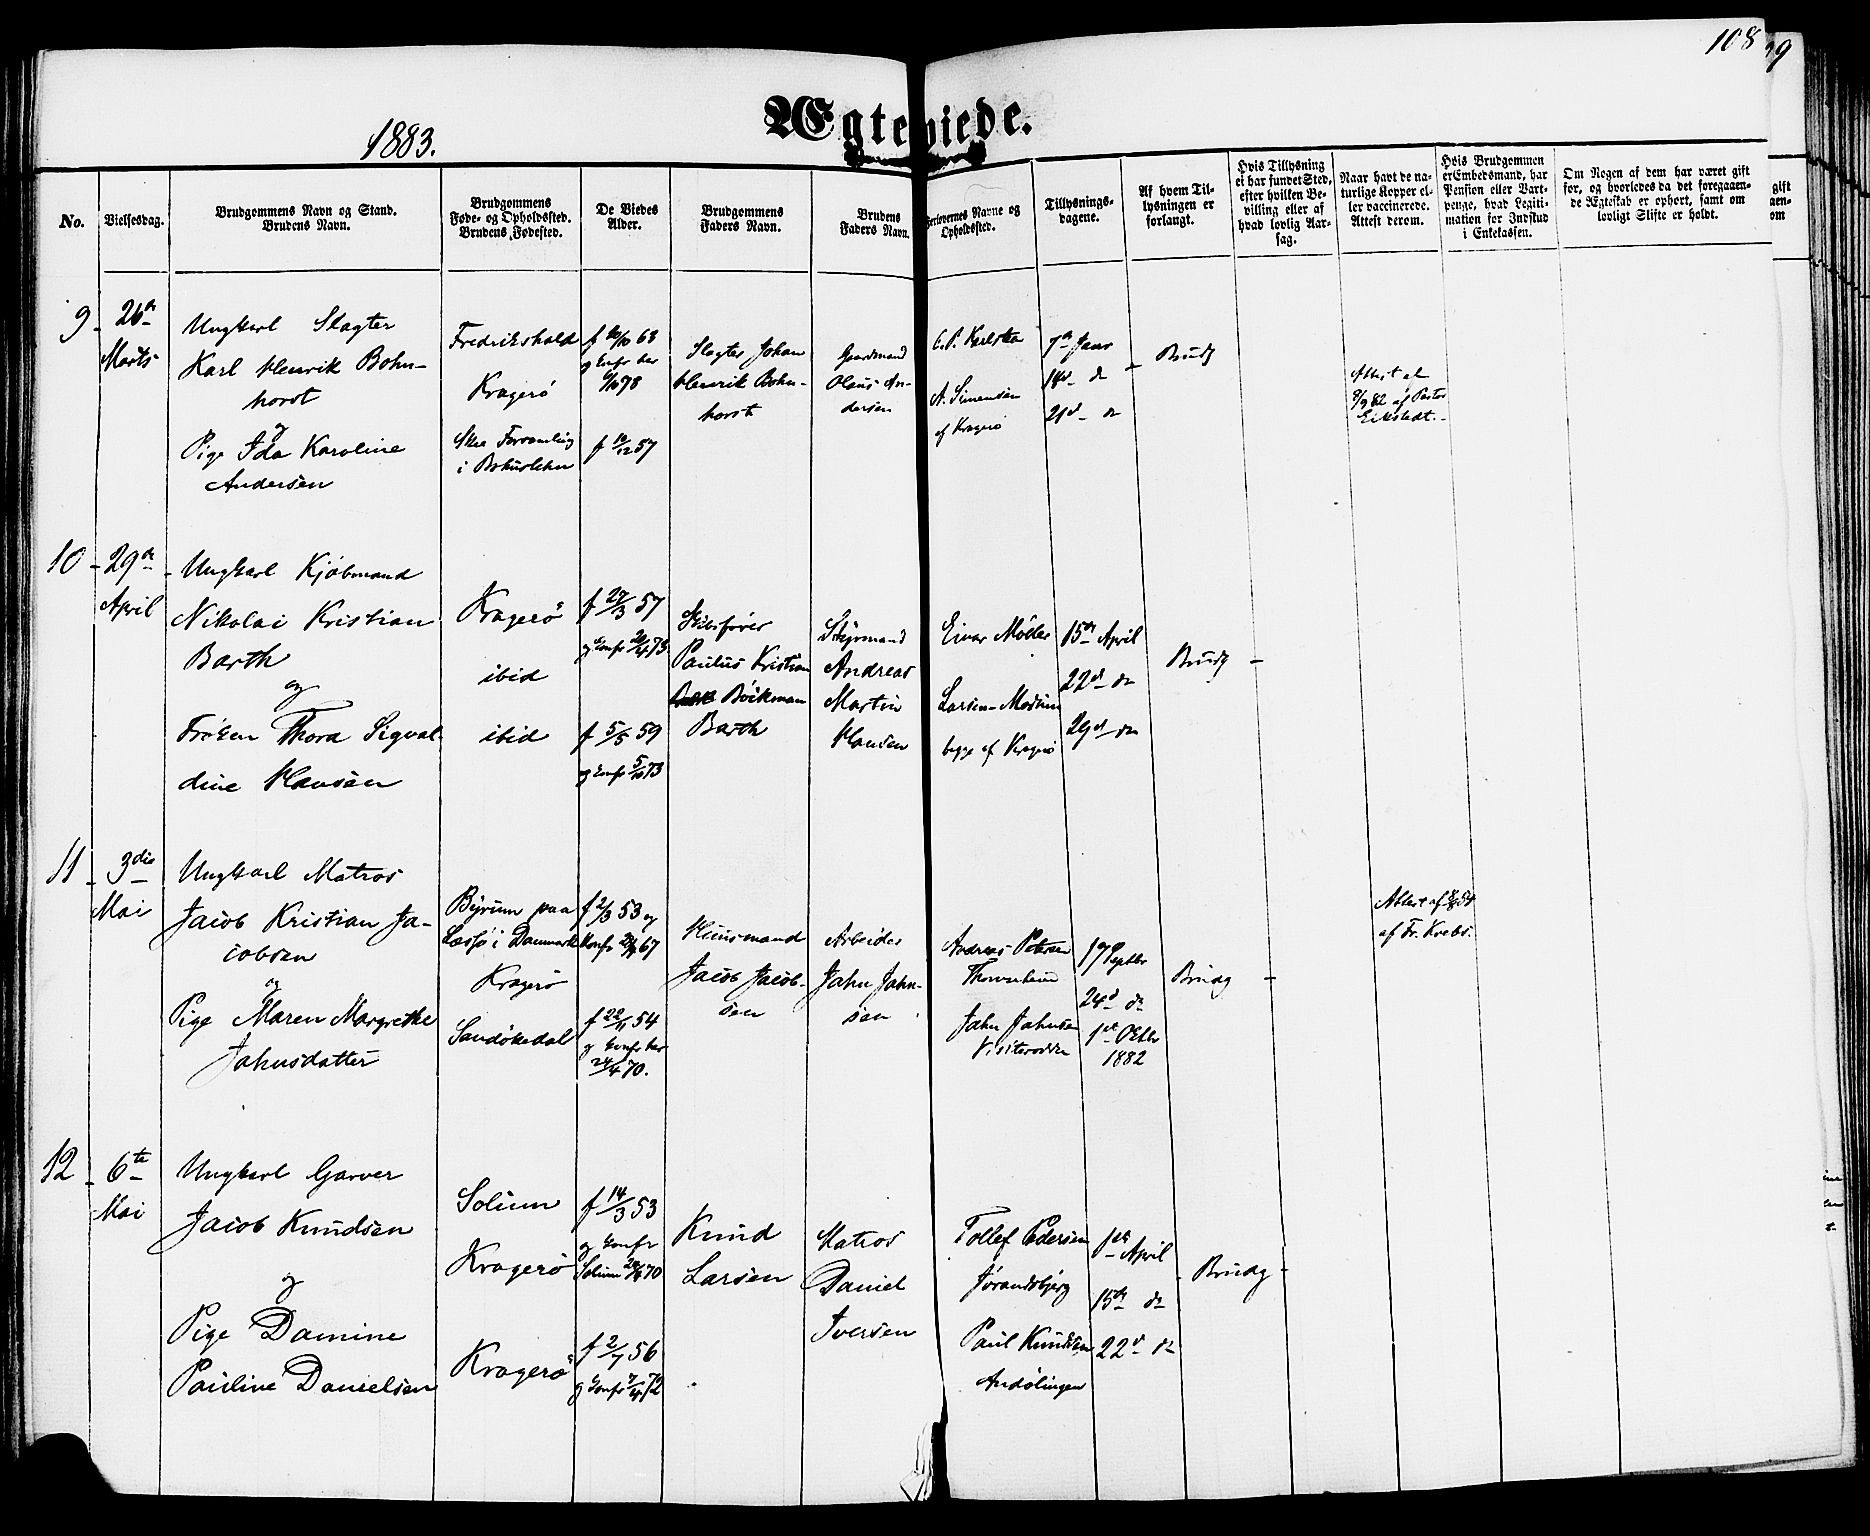 108
1883.
Ægteviede.
No.
Vielsesdag.
Brudgommens Navn og Stand.
Brudens Navn.
Brudgommens
Føde- og Opholdssted.
Brudens Fødested.
De Viedes
Alder.
Brudgommens
Faders Navn.
Brudens
Faders Navn.
Forlovernes Navne og
Opholdssted.
Tillysnings-
dagene.
Af hvem Til-
lysningen er
forlangt.
Hvis Tillysning
ei har fundet Sted,
efter hvilken Be-
villing eller af
hvad lovlig Aar-
sag.
Naar havt de na-
turlige Kopper el-
ler vaccinerede.
Attest derom.
Hvis Brudgommen
er Embedsmand, har
Pension eller Vart-
penge, hvad Legiti-
mation for Indskud
i Enkekassen.
Om Nogen af dem har været gift
før, og hvorledes da det foregaaen-
de Ægteskab er ophørt, samt om
lovligt Skifte er holdt.
9
26de
Marts
Ungkarl Slagter
Karl Henrik Bohn-
horst
og
Pige Ida Karoline
Andersen
Fredrikshald
Kragerø
Skee Forsamling
i Bohuslehn
f
og Konfr her
f 10/12 57
Slagter Johan
Henrik Bohn-
horst
Gaardmand
Olaus An-
dersen
A. Simensen
af Kragerø
7de Janr
14d do
21d do
Brudg
Attest af
8/9 82 af Pastor
Eckstedt.
10
29de
April
Ungkarl Kjøbmand
Nikolai Kristian
Barth
og
Frøken Thora Sigval-
dine Hansen
Kragerø
ibid
ibid
f 27/3 57
og Konfr
f 5/5 59
og Konfr 5/10 73
Skibsfører
Paulus Kristian
Böckman
Barth
Styrmand
Andreas
Martin
Hansen
Einar Møller
Larsen-Modum
begge af Kragerø
15de April
22d do
29d do
Brudg
11
3die
Mai
Ungkarl Matros
Jacob Kristian Ja-
cobsen
og
Pige Maren Margrethe
Jahnsdatter
Byrum paa
Læssø i Danmark
Kragerø
Sandøkedal
f 2/3 53 og
Konfr
f 22/11 54
og Konfr her
24/4 70.
Huusmand
Jacob Jacob-
sen
Arbeider
Jahn Jahn-
sen
Andreas Petersen
Jahn Jahnsen
17 Septbr
24d do
1st Oktbr
1882
Brudg
Attest af
af Fr. Krebs.
12
6te
Mai
Ungkarl Garver
Jacob Knudsen
og
Pige Damine
Pauline Danielsen
Solum
Kragerø
Kragerø
f 14/3 53
og Konfr
Solum
f 2/7 56
og Konfr
Knud
Larsen
Matros
Daniel
Iversen
Tollef Pedersen
Jørandsbjerg
Paul Knudsen
Andølingen
1ste April
15de do
22d do
Brudg